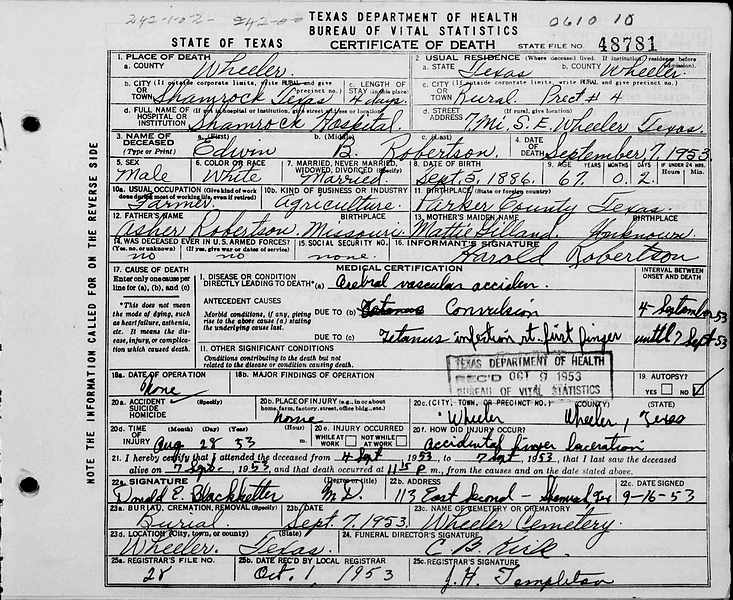 242-1-02- 242-00
0610 10
TEXAS DEPARTMENT OF HEALTH
BUREAU OF VITAL STATISTICS
STATE OF TEXAS CERTIFICATE OF DEATH STATE FILE NO. 48781
NOTE THE INFORMATION CALLED FOR ON THE REVERSE SIDE
1. PLACE OF DEATH
a. COUNTY Wheeler
2. USUAL RESIDENCE (Where deceased lived. If institution: residence before admission).
a. STATE Texas b. COUNTY Wheeler
b. CITY (If outside corporate limits, write RURAL and give
OR precinct no.)
TOWN Shamrock Texas
c. LENGTH OF
STAY (in this place)
4 days
c. CITY (If outside corporate limits, write RURAL and give
OR precinct no.)
TOWN Rural Prect #1
d. FULL NAME OF (If not in hospital or institution, give street address or location)
HOSPITAL OR
INSTITUTION Shamrock Hospital
d. STREET (If rural, give location)
ADDRESS 7 Mi. S. E. Wheeler Texas
3. NAME OF a. (First) b. (Middle) c. (Last)
DECEASED
(Type or Print) Edwin B. Robertson
4. DATE
OF
DEATH September 7, 1953
5. SEX
Male
6. COLOR OR RACE
White
7. MARRIED, NEVER MARRIED,
WIDOWED, DIVORCED (Specify)
Married
8. DATE OF BIRTH
Sept. 5, 1886
9. AGE YEARS MONTHS DAYS IF UNDER 24 HRS.
Hours Min.
67 0 2
10a. USUAL OCCUPATION (Give kind of work
done during most of working life, even if retired)
Farmer
10b. KIND OF BUSINESS OR INDUSTRY
Agriculture
11. BIRTHPLACE (State or foreign country)
Parker County Texas
12. FATHER'S NAME BIRTHPLACE
Asher Robertson Missouri
13. MOTHER'S MAIDEN NAME BIRTHPLACE
Mattie Gilland Unknown
14. WAS DECEASED EVER IN U.S. ARMED FORCES?
(Yes, no, or unknown) (If yes, give war or dates of service)
no no
15. SOCIAL SECURITY NO.
none
16. INFORMANT'S SIGNATURE
Harold Robertson
17. CAUSE OF DEATH
Enter only one cause per
line for (a), (b), and (c)
*This does not mean
the mode of dying, such
as heart failure, asthenia,
etc. It means the dis-
ease, injury, or complica-
tion which caused death.
MEDICAL CERTIFICATION
INTERVAL BETWEEN
ONSET AND DEATH
I. DISEASE OR CONDITION
DIRECTLY LEADING TO DEATH* (a) Cerebral vascular acciden
ANTECEDENT CAUSES
Morbid conditions, if any, giving
rise to the above cause (a) stating
the underlying cause last.
DUE TO (b) Tetanus Convulsion
DUE TO (c) Tetanus infection rt. first finger
4 September 53
until 7 Sept 53
II. OTHER SIGNIFICANT CONDITIONS
Conditions contributing to the death but not
related to the disease or condition causing death.
TEXAS DEPARTMENT OF HEALTH
REC'D OCT 9 1953
BUREAU OF VITAL STATISTICS
18a. DATE OF OPERATION
None
18b. MAJOR FINDINGS OF OPERATION
19. AUTOPSY?
YES NO
20a. ACCIDENT (Specify)
SUICIDE
HOMICIDE
20b. PLACE OF INJURY (e.g., in or about
home, farm, factory, street, office bldg., etc.)
home
20c. (CITY, TOWN, OR PRECINCT NO.) (COUNTY) (STATE)
Wheeler Wheeler, Texas
20d. TIME (Month) (Day) (Year) (Hour)
OF
INJURY Aug 28 53 m
20e. INJURY OCCURRED
WHILE AT WORK NOT WHILE AT WORK
20f. HOW DID INJURY OCCUR?
Accidental finger laceration
21. I hereby certify that I attended the deceased from 4 Sept 1953, to 7 Sept, 1953, that I last saw the deceased
alive on 7 Sept, 1953, and that death occurred at 11:15 P m., from the causes and on the date stated above.
22a. SIGNATURE (Degree or title)
Donald E. Blackketter M D.
22b. ADDRESS
113 East Second - Shamrock Tex
22c. DATE SIGNED
9-16-53
23a. BURIAL, CREMATION, REMOVAL (Specify)
Burial
23b. DATE
Sept. 7, 1953
23c. NAME OF CEMETERY OR CREMATORY
Wheeler Cemetery
23d. LOCATION (City, town, or county) (State)
Wheeler, Texas
24. FUNERAL DIRECTOR'S SIGNATURE
C. B. Kirk
25a. REGISTRAR'S FILE NO.
28
25b. DATE REC'D BY LOCAL REGISTRAR
Oct. 1, 1953
25c. REGISTRAR'S SIGNATURE
J. H. Templeton